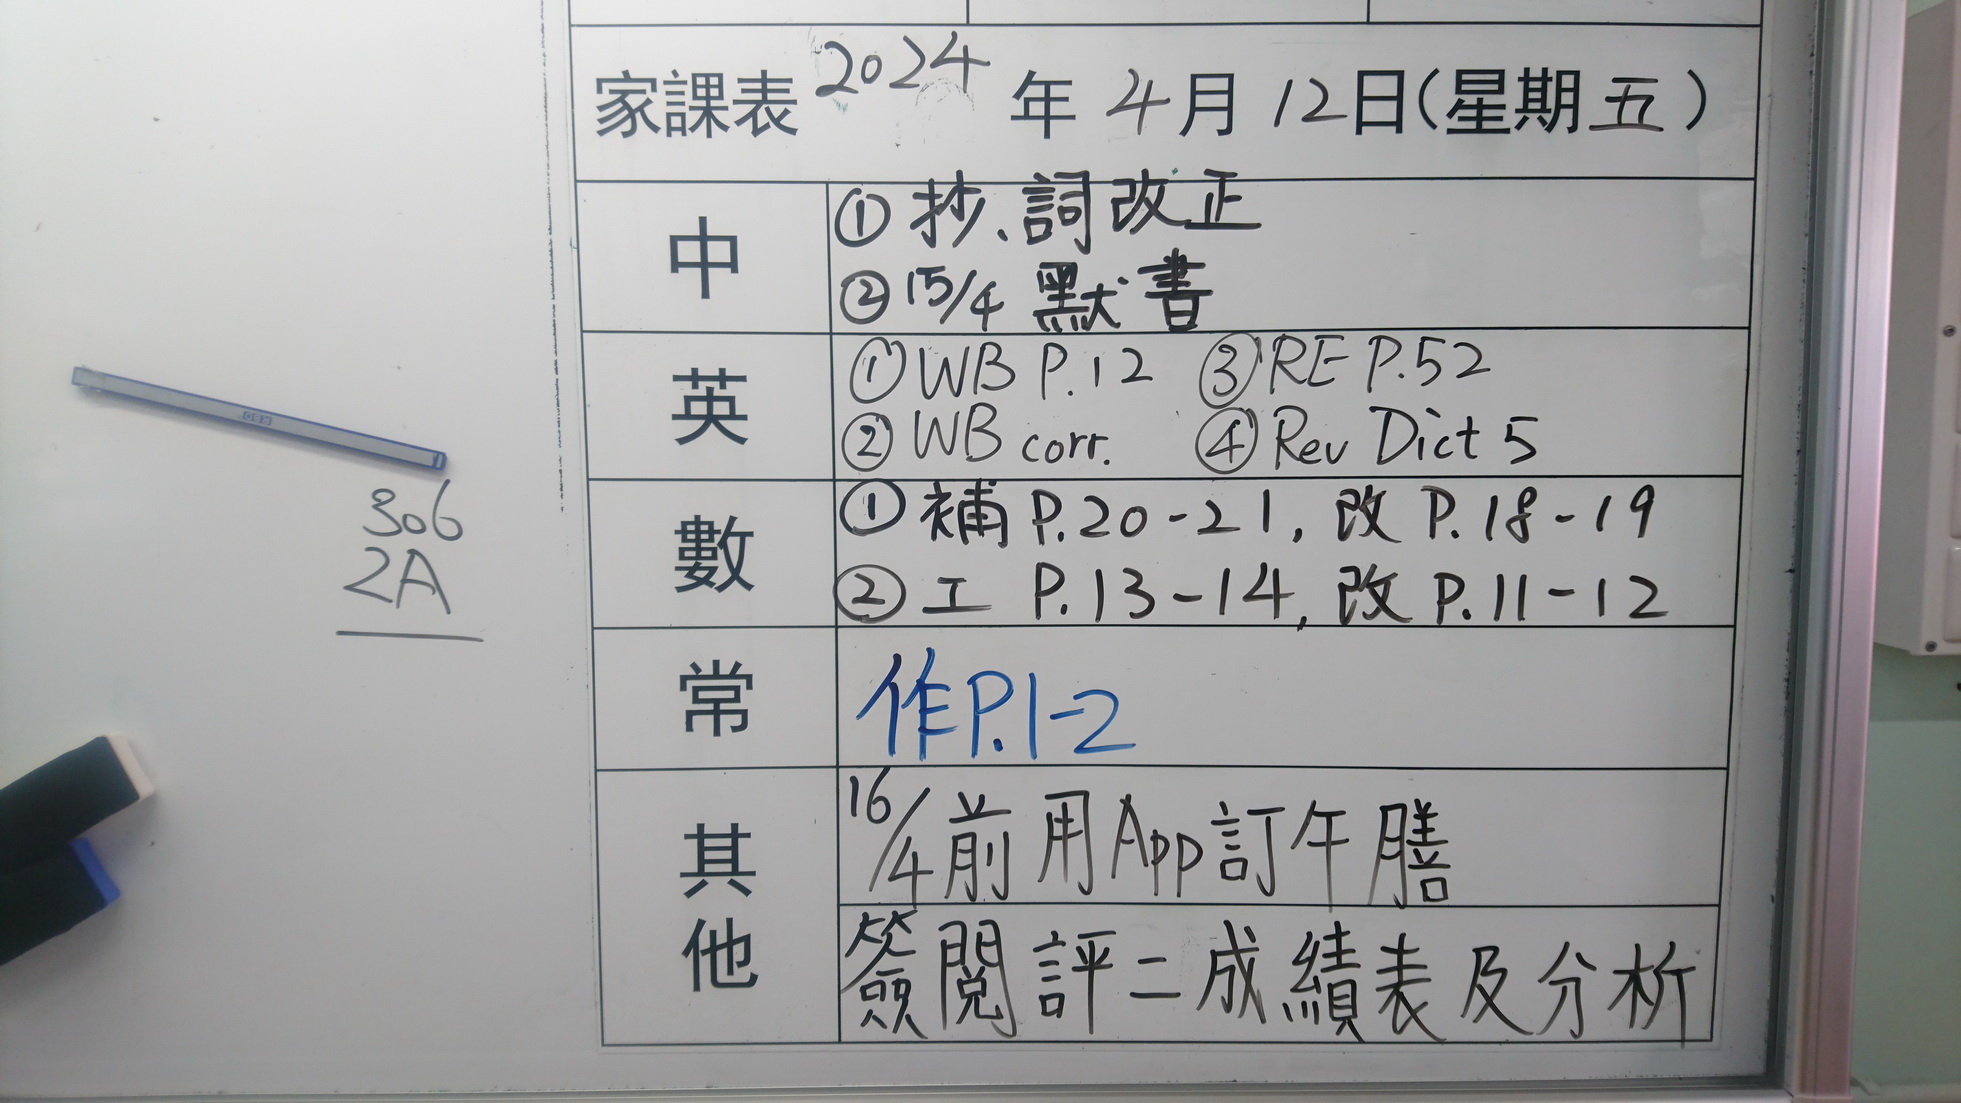 家課表 2024 年 4 月 12 日(星期五)
中
① 抄、詞改正
② 15/4 默書
英
① WB P.12 ③ RE P.52
② WB corr. ④ Rev Dict 5
數
① 補 P.20-21, 改 P.18-19
② 工 P.13-14, 改 P.11-12
常
作P.1-2
其他
16/4前用App訂午膳
簽閱評二成績表及分析
306
2A